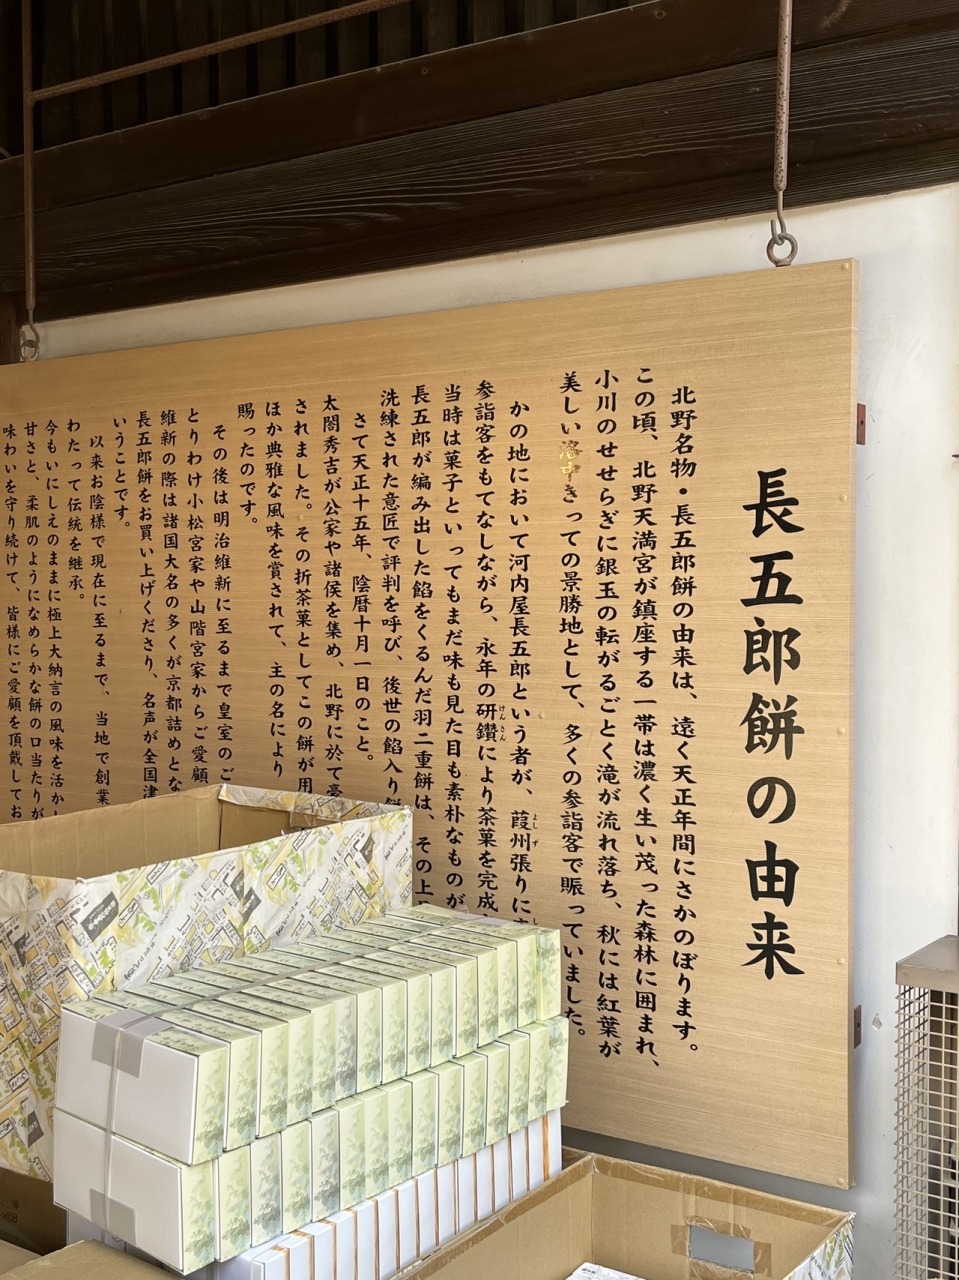 長五郎餅の由来
北野名物・長五郎餅の由来は、遠く天正年間にさかのぼります。
この頃、北野天満宮が鎮座する一帯は濃く生い茂った森林に囲まれ、
小川のせせらぎに銀玉の転がるごとく滝が流れ落ち、秋には紅葉が
美しい洛中きっての景勝地として、多くの参詣客で賑っていました。
かの地において河内屋長五郎という者が、葭州張りに
よしず
参詣客をもてなしながら、永年の研鑽により茶菓を完成
けんさん
当時は菓子といってもまだ味も見た目も素朴なものが
長五郎が編み出した餡をくるんだ羽二重餅は、その上
洗練された意匠で評判を呼び、後世の餡入り
さて天正十五年、陰暦十月一日のこと。
太閤秀吉が公家や諸侯を集め、北野に於て
されました。その折茶菓としてこの餅が用
ほか典雅な風味を賞されて、主の名により
賜ったのです。
その後は明治維新に至るまで皇室のご
とりわけ小松宮家や山階宮家からご愛顧
維新の際は諸国大名の多くが京都詰めとな
長五郎餅をお買い上げくださり、名声が全国津
いうことです。
以来お陰様で現在に至るまで、当地で創業
わたって伝統を継承。
今もいにしえのままに極上大納言の風味を活か
甘さと、柔肌のようになめらかな餅の口当たりが
味わいを守り続けて、皆様にご愛顧を頂戴してお